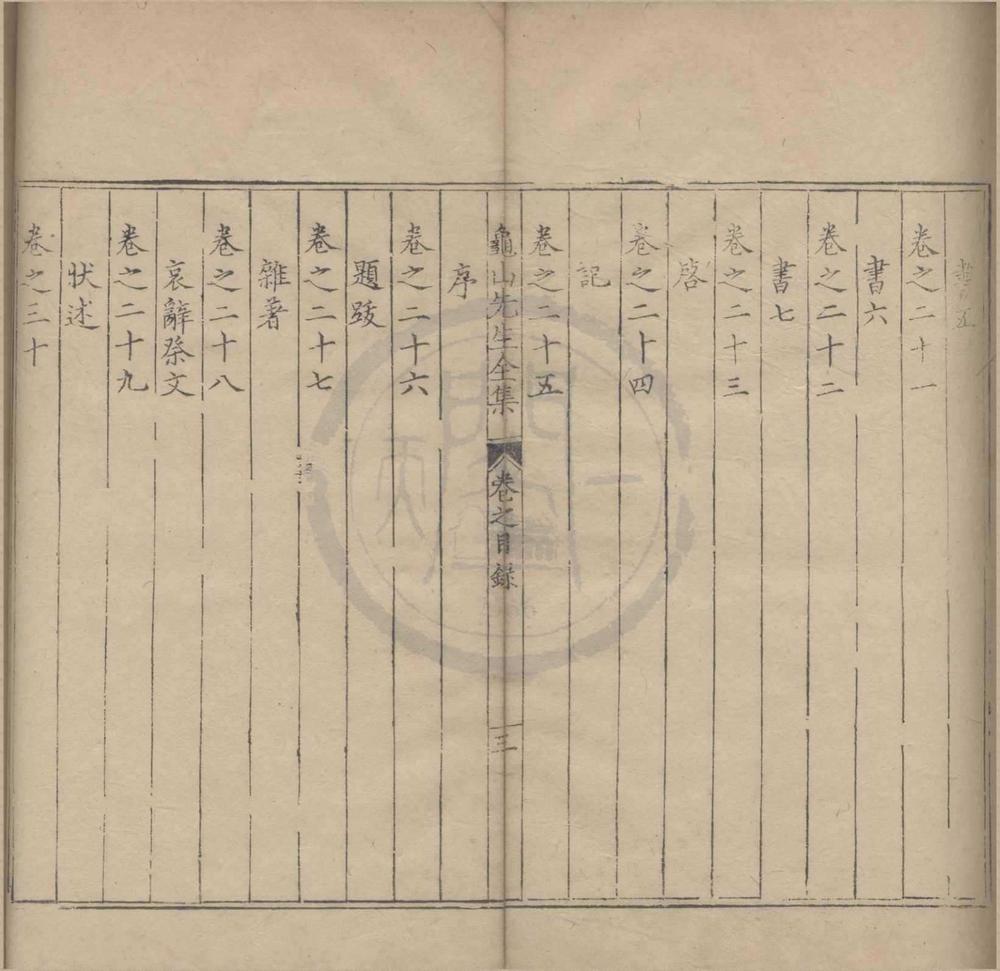 書五
卷之二十一
書六
卷之二十二
書七
卷之二十三
啓
卷之二十四
記
卷之二十五
龜山先生全集
卷之目錄
三
序
卷之二十六
題跋
卷之二十七
雜著
卷之二十八
哀辭祭文
卷之二十九
狀述
卷之三十